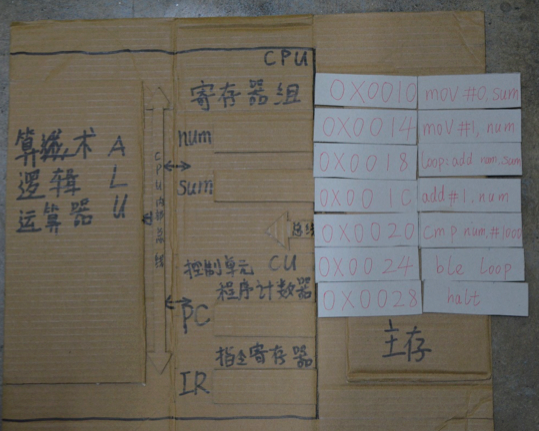 CPU
寄存器组
num
sum
算术
逻辑
运算器
A
L
U
CPU内部总线
总线
控制单元 CU
程序计数器
PC
指令寄存器
IR
0X0010 mov #0, sum
0X0014 mov #1, num
0X0018 loop: add num, sum
0X001C add #1, num
0X0020 cmp num, #1000
0X0024 ble loop
0X0028 halt
主存